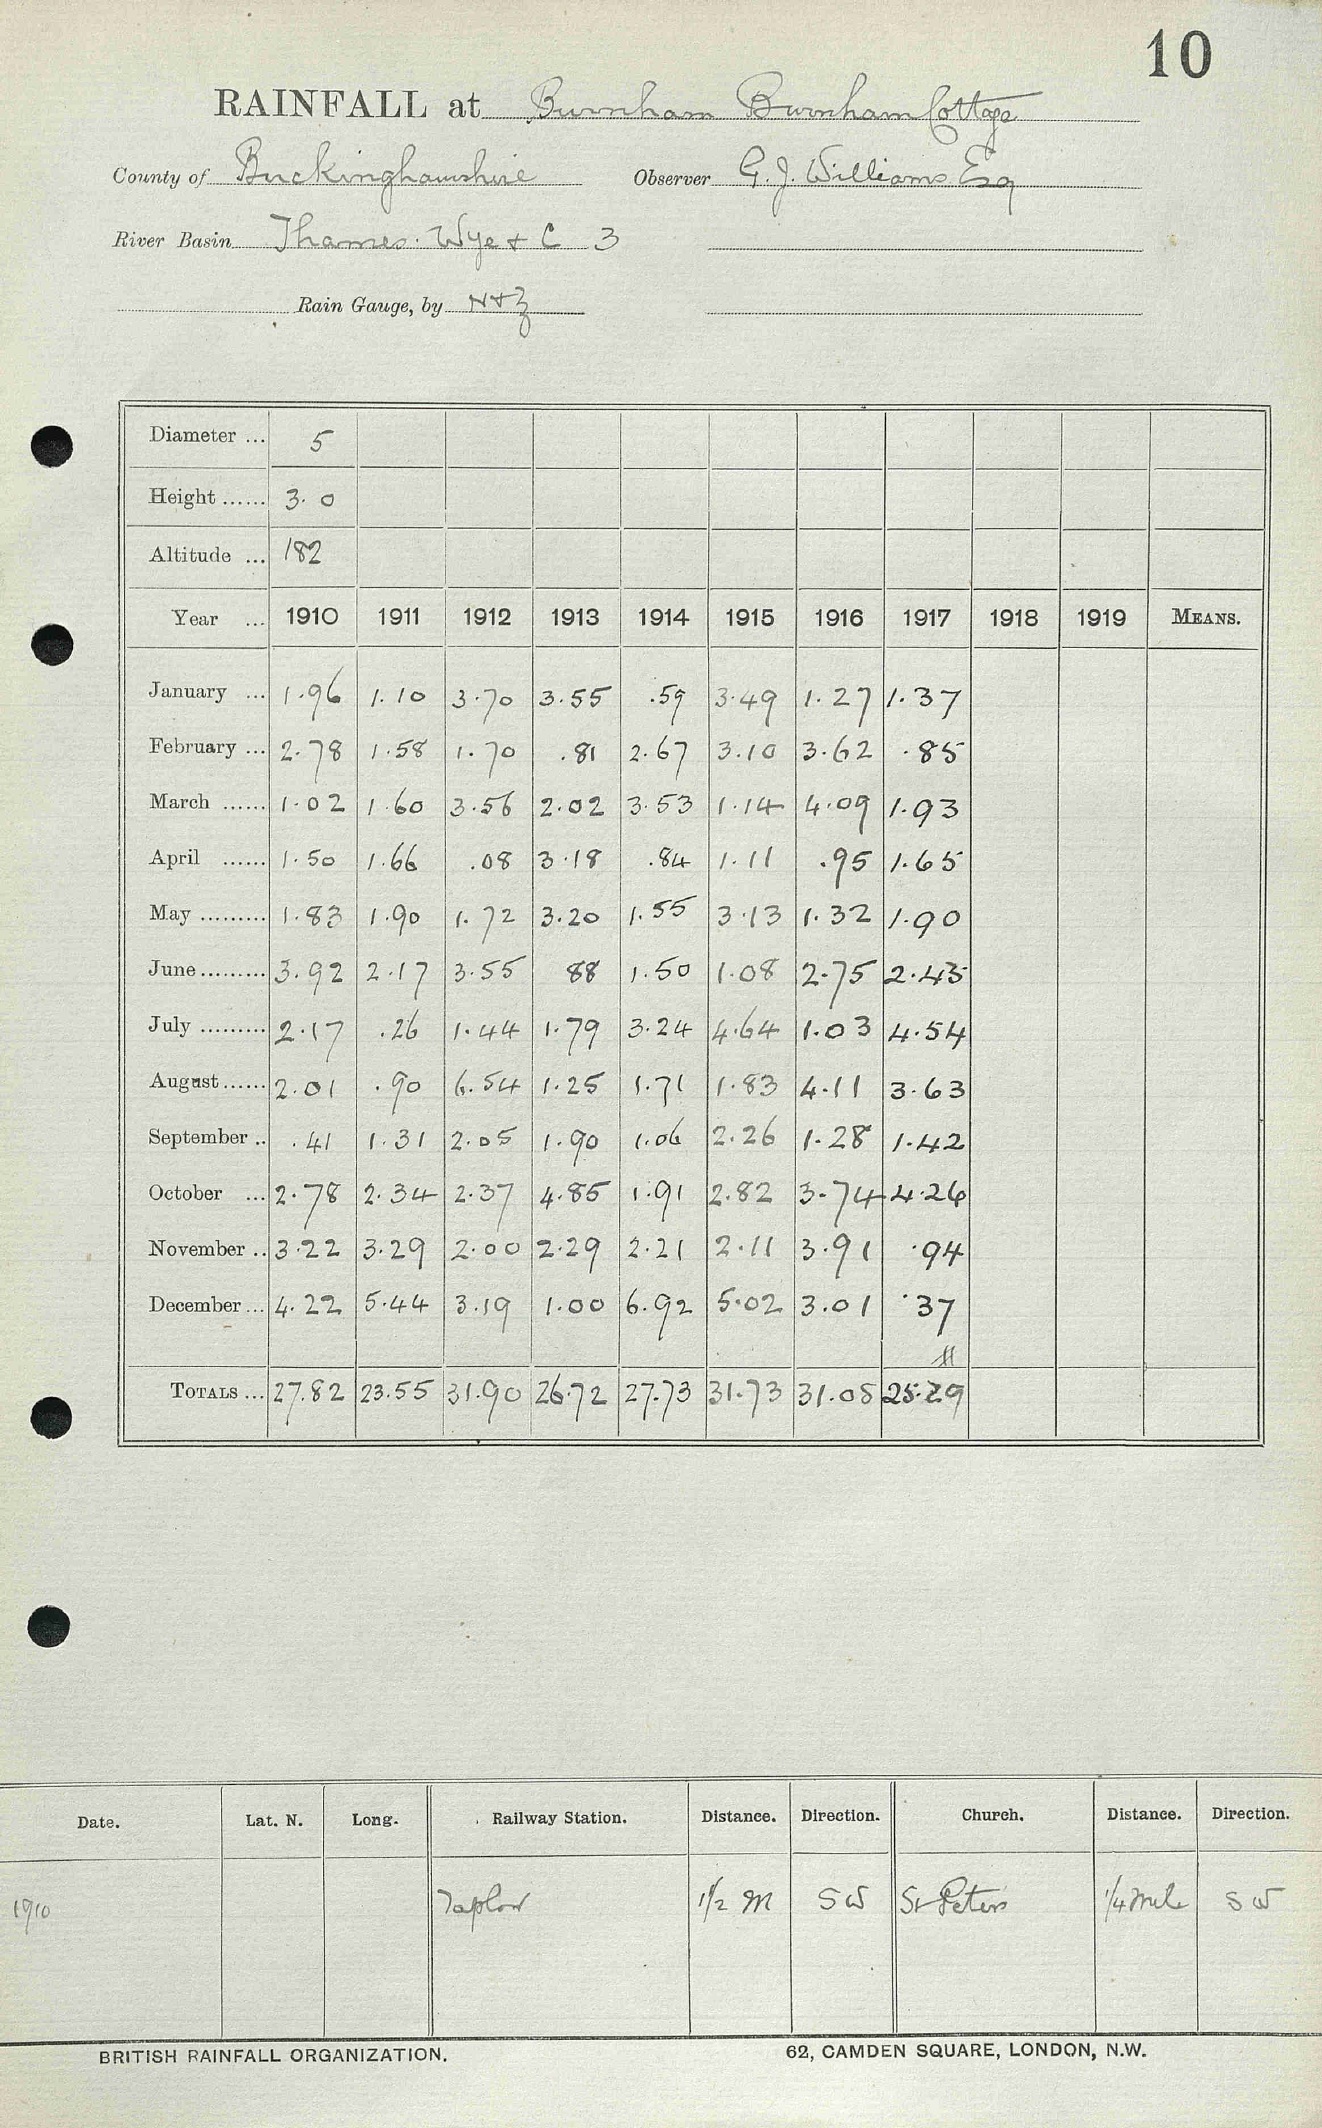 10
RAINFALL at Burnham Burnham Cottage
County of Buckinghamshire Observer G. J. Williams Esq
River Basin Thames. Wye & C 3
Rain Gauge, by N & Z
Diameter ... 5
Height ...... 3.0
Altitude ... 182
Year ... 1910 1911 1912 1913 1914 1915 1916 1917 1918 1919 MEANS.
January ... 1.96 1.10 3.70 3.55 .59 3.49 1.27 1.37
February ... 2.78 1.58 1.70 .81 2.67 3.10 3.62 .85
March ...... 1.02 1.60 3.56 2.02 3.53 1.14 4.09 1.93
April ...... 1.50 1.66 .08 3.18 .84 1.11 .95 1.65
May ......... 1.83 1.90 1.72 3.20 1.55 3.13 1.32 1.90
June ......... 3.92 2.17 3.55 88 1.50 1.08 2.75 2.43
July ......... 2.17 .26 1.44 1.79 3.24 4.64 1.03 4.54
August ...... 2.01 .90 6.54 1.25 1.71 1.83 4.11 3.63
September .. .41 1.31 2.05 1.90 1.06 2.26 1.28 1.42
October ... 2.78 2.34 2.37 4.85 1.91 2.82 3.74 4.26
November .. 3.22 3.29 2.00 2.29 2.21 2.11 3.91 .94
December ... 4.22 5.44 3.19 1.00 6.92 5.02 3.01 .37
TOTALS ... 27.82 23.55 31.90 26.72 27.73 31.73 31.08 25.29
Date. Lat. N. Long. Railway Station. Distance. Direction. Church. Distance. Direction.
1910 Taplow 1/2 M SW St Peters 1/4 mile SW
BRITISH RAINFALL ORGANIZATION. 62, CAMDEN SQUARE, LONDON, N.W.